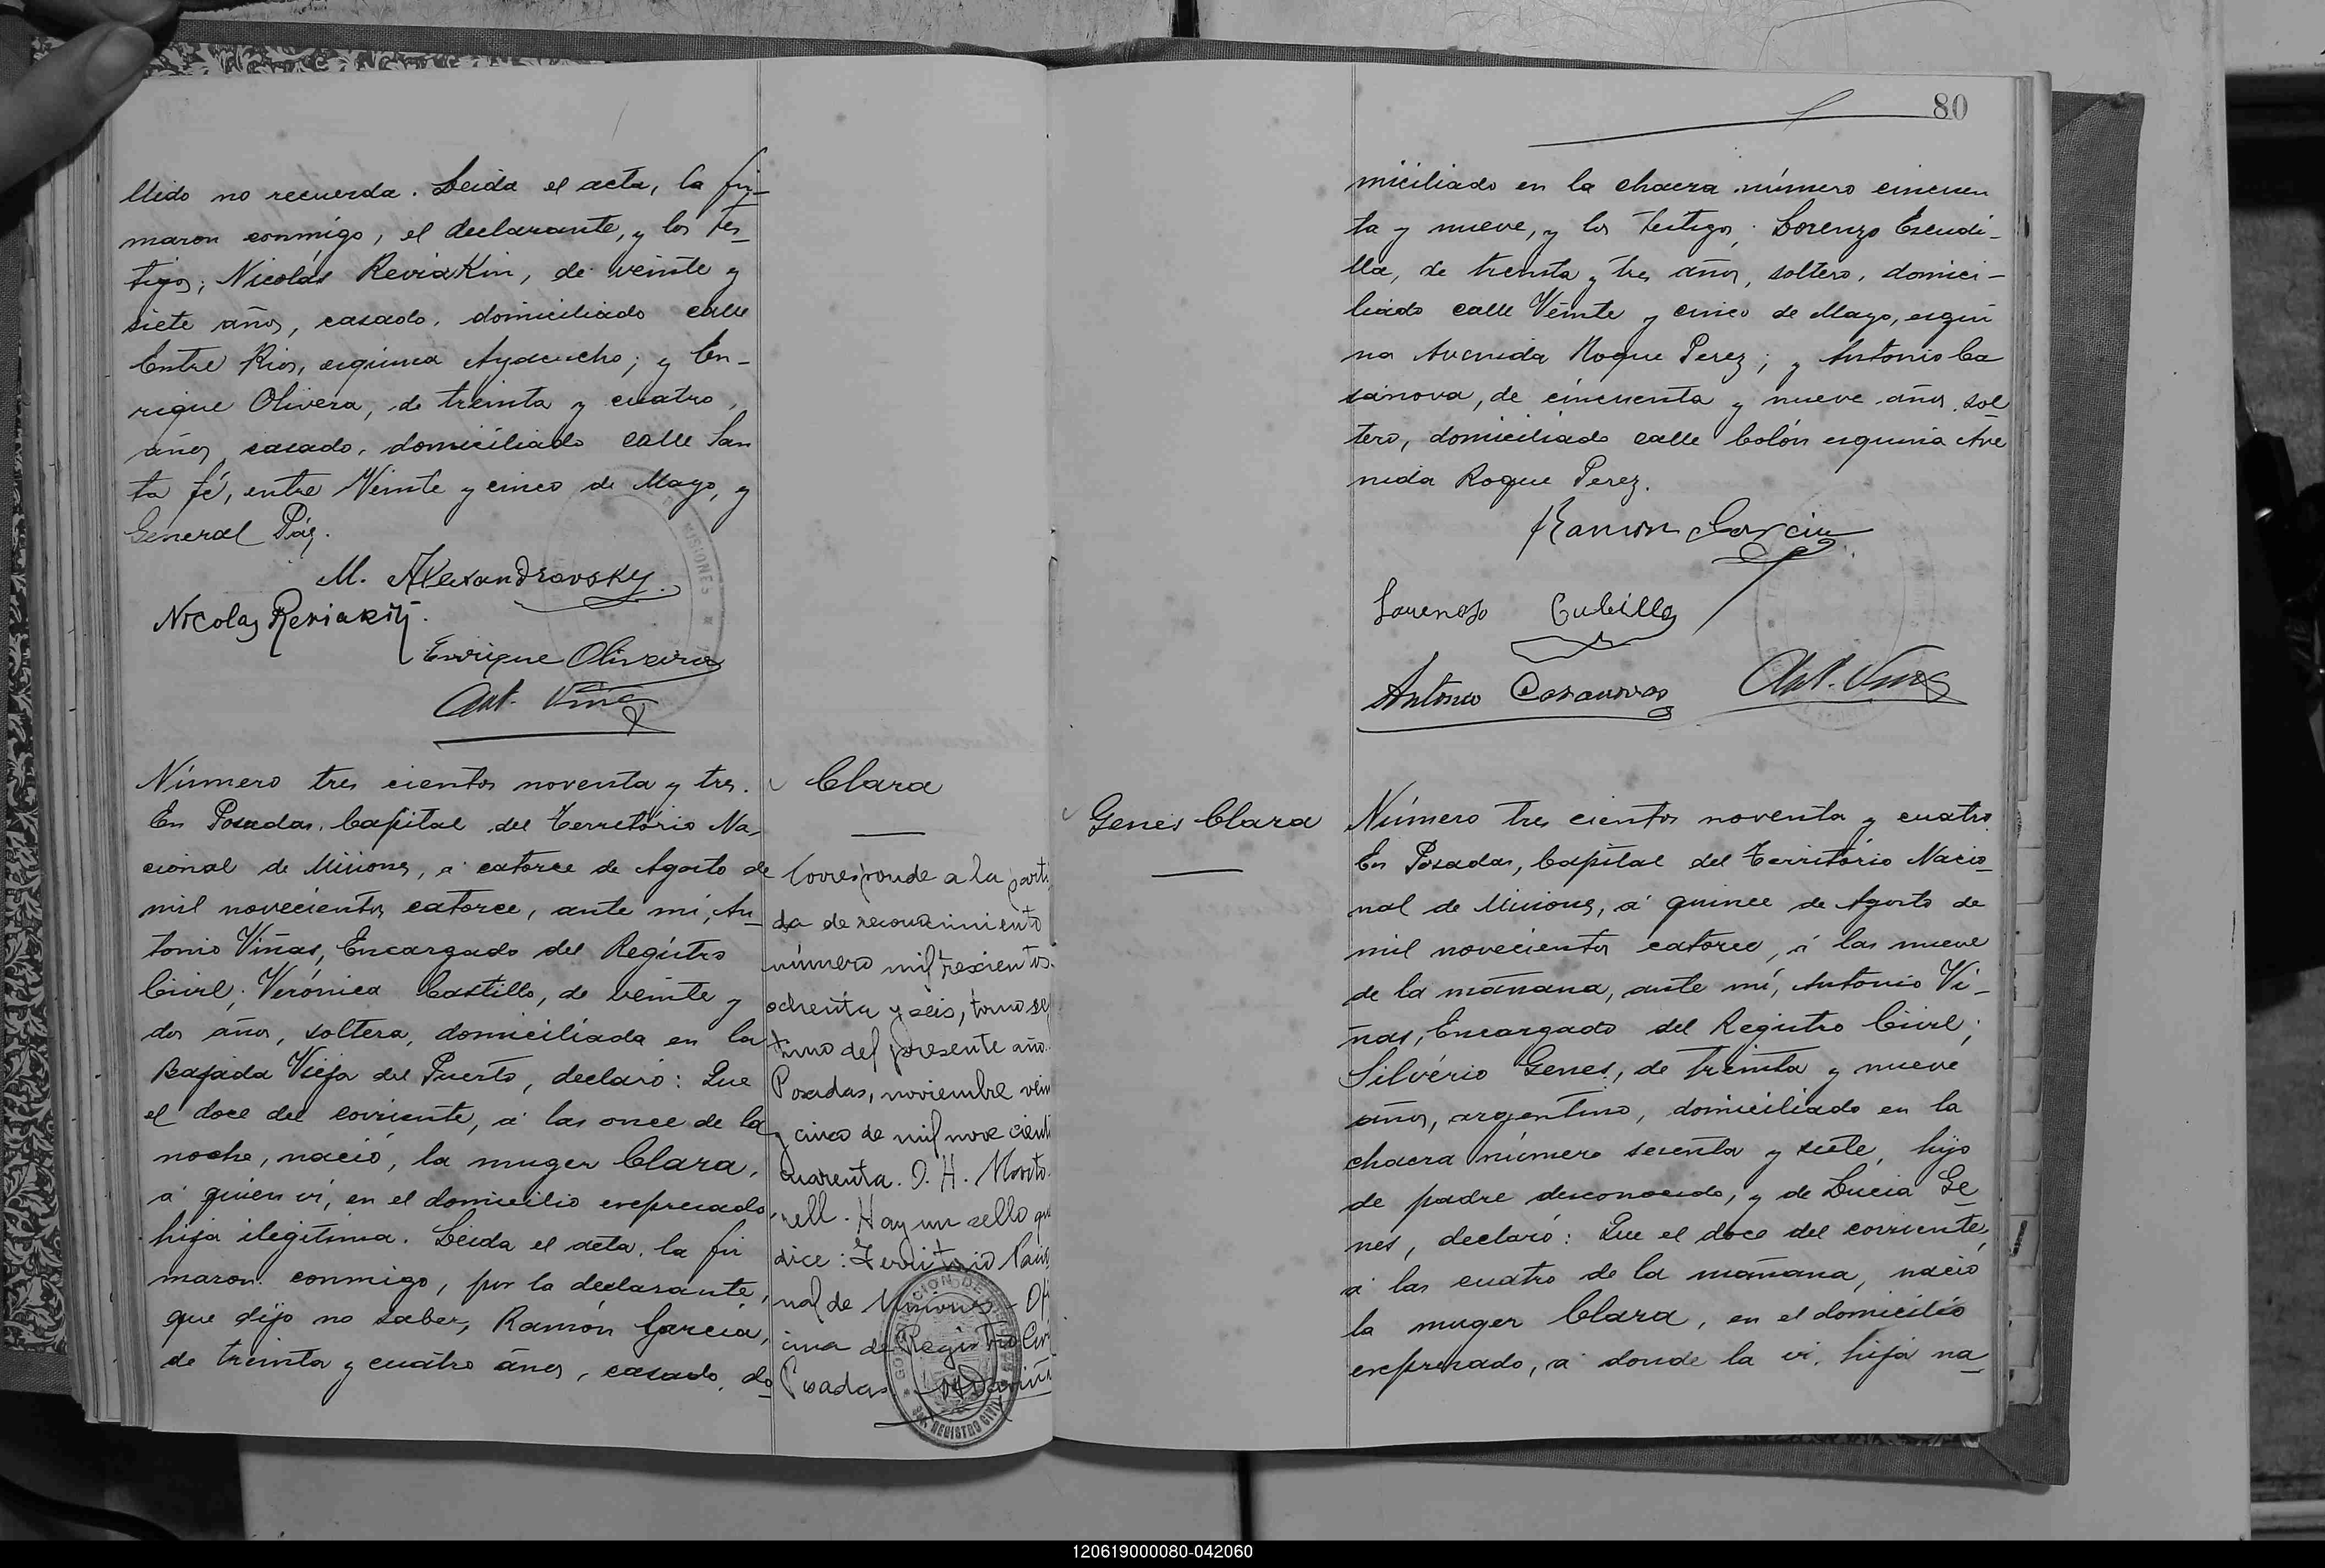 llido no recuerda. Leida el acta, la fir-
maron conmigo, el declarante, y los tes-
tigos; Nicolás Reviakin, de veinte y
siete años, casado, domiciliado calle
Entre Rios, esquina Ayacucho; y En-
rique Olivera, de treinta y cuatro,
años, casado, domiciliado calle San
ta fé, entre Veinte y cinco de Mayo, y
General Páz.
M. Alexandrovsky
Nicolas Reviakin.
Enrique Oliveira
Ant. Viñas
Número tres cientos noventa y tres.
En Posadas, Capital del Território Na-
cional de Misiones, á catorce de Agosto de
mil novecientos catorce, ante mi, An-
tonio Viñas, Encargado del Registro
Civil; Verónica Castillo, de veinte y
dos años, soltera, domiciliada en la
Bajada Vieja del Puerto, declaró: Que
el doce del corriente, á las once de la
noche, nació, la muger Clara,
á quien vi, en el domicilio expresado,
hija ilegitima. Leida el acta, la fir
maron conmigo, por la declarante,
que dijo no saber, Ramón García,
de treinta y cuatro años, casado, do
Clara
Corresponde a la parti
da de reconocimiento
número mil trescientos
ochenta y seis, tomo sep
timo del presente año.
Posadas, noviembre vein
y cinco de mil nove cient
cuarenta. D. H.
rell. Hay un sello que
dice: Territorio Nacio
nal de Misiones - Ofi
cina de Registro Civi
Posadas
GOBERNACION DE MISIONES
REGISTRO CIVIL
80
miciliado en la chacra número cincuen
ta y nueve, y los testigos; Lorenzo Escudi-
lla, de treinta y tres años, soltero, domici-
liado calle Veinte y cinco de Mayo, esqui
na Avenida Roque Perez; y Antonio Ca
sanova, de cincuenta y nueve años, sol
tero, domiciliado calle Colón esquina Ave
nida Roque Perez.
Ramon Garcia
Lorenso Cubilla
Antonio Casanovas
Ant. Viñas
Genes Clara
Número tres cientos noventa y cuatro
En Posadas, Capital del Território Nacio-
nal de Misiones, á quince de Agosto de
mil novecientos catorce, á las nueve
de la mañana, ante mí, Antonio Vi-
ñas, Encargado del Registro Civil;
Silvério Genes, de treinta y nueve
años, argentino, domiciliado en la
chacra número sesenta y siete, hijo
de padre desconocido, y de Lucia Ge
nes, declaró: Que el doce del corriente,
á las cuatro de la mañana, nació
la muger Clara, en el domicilio
expresado, á donde la vi, hija na
120619000080-042060